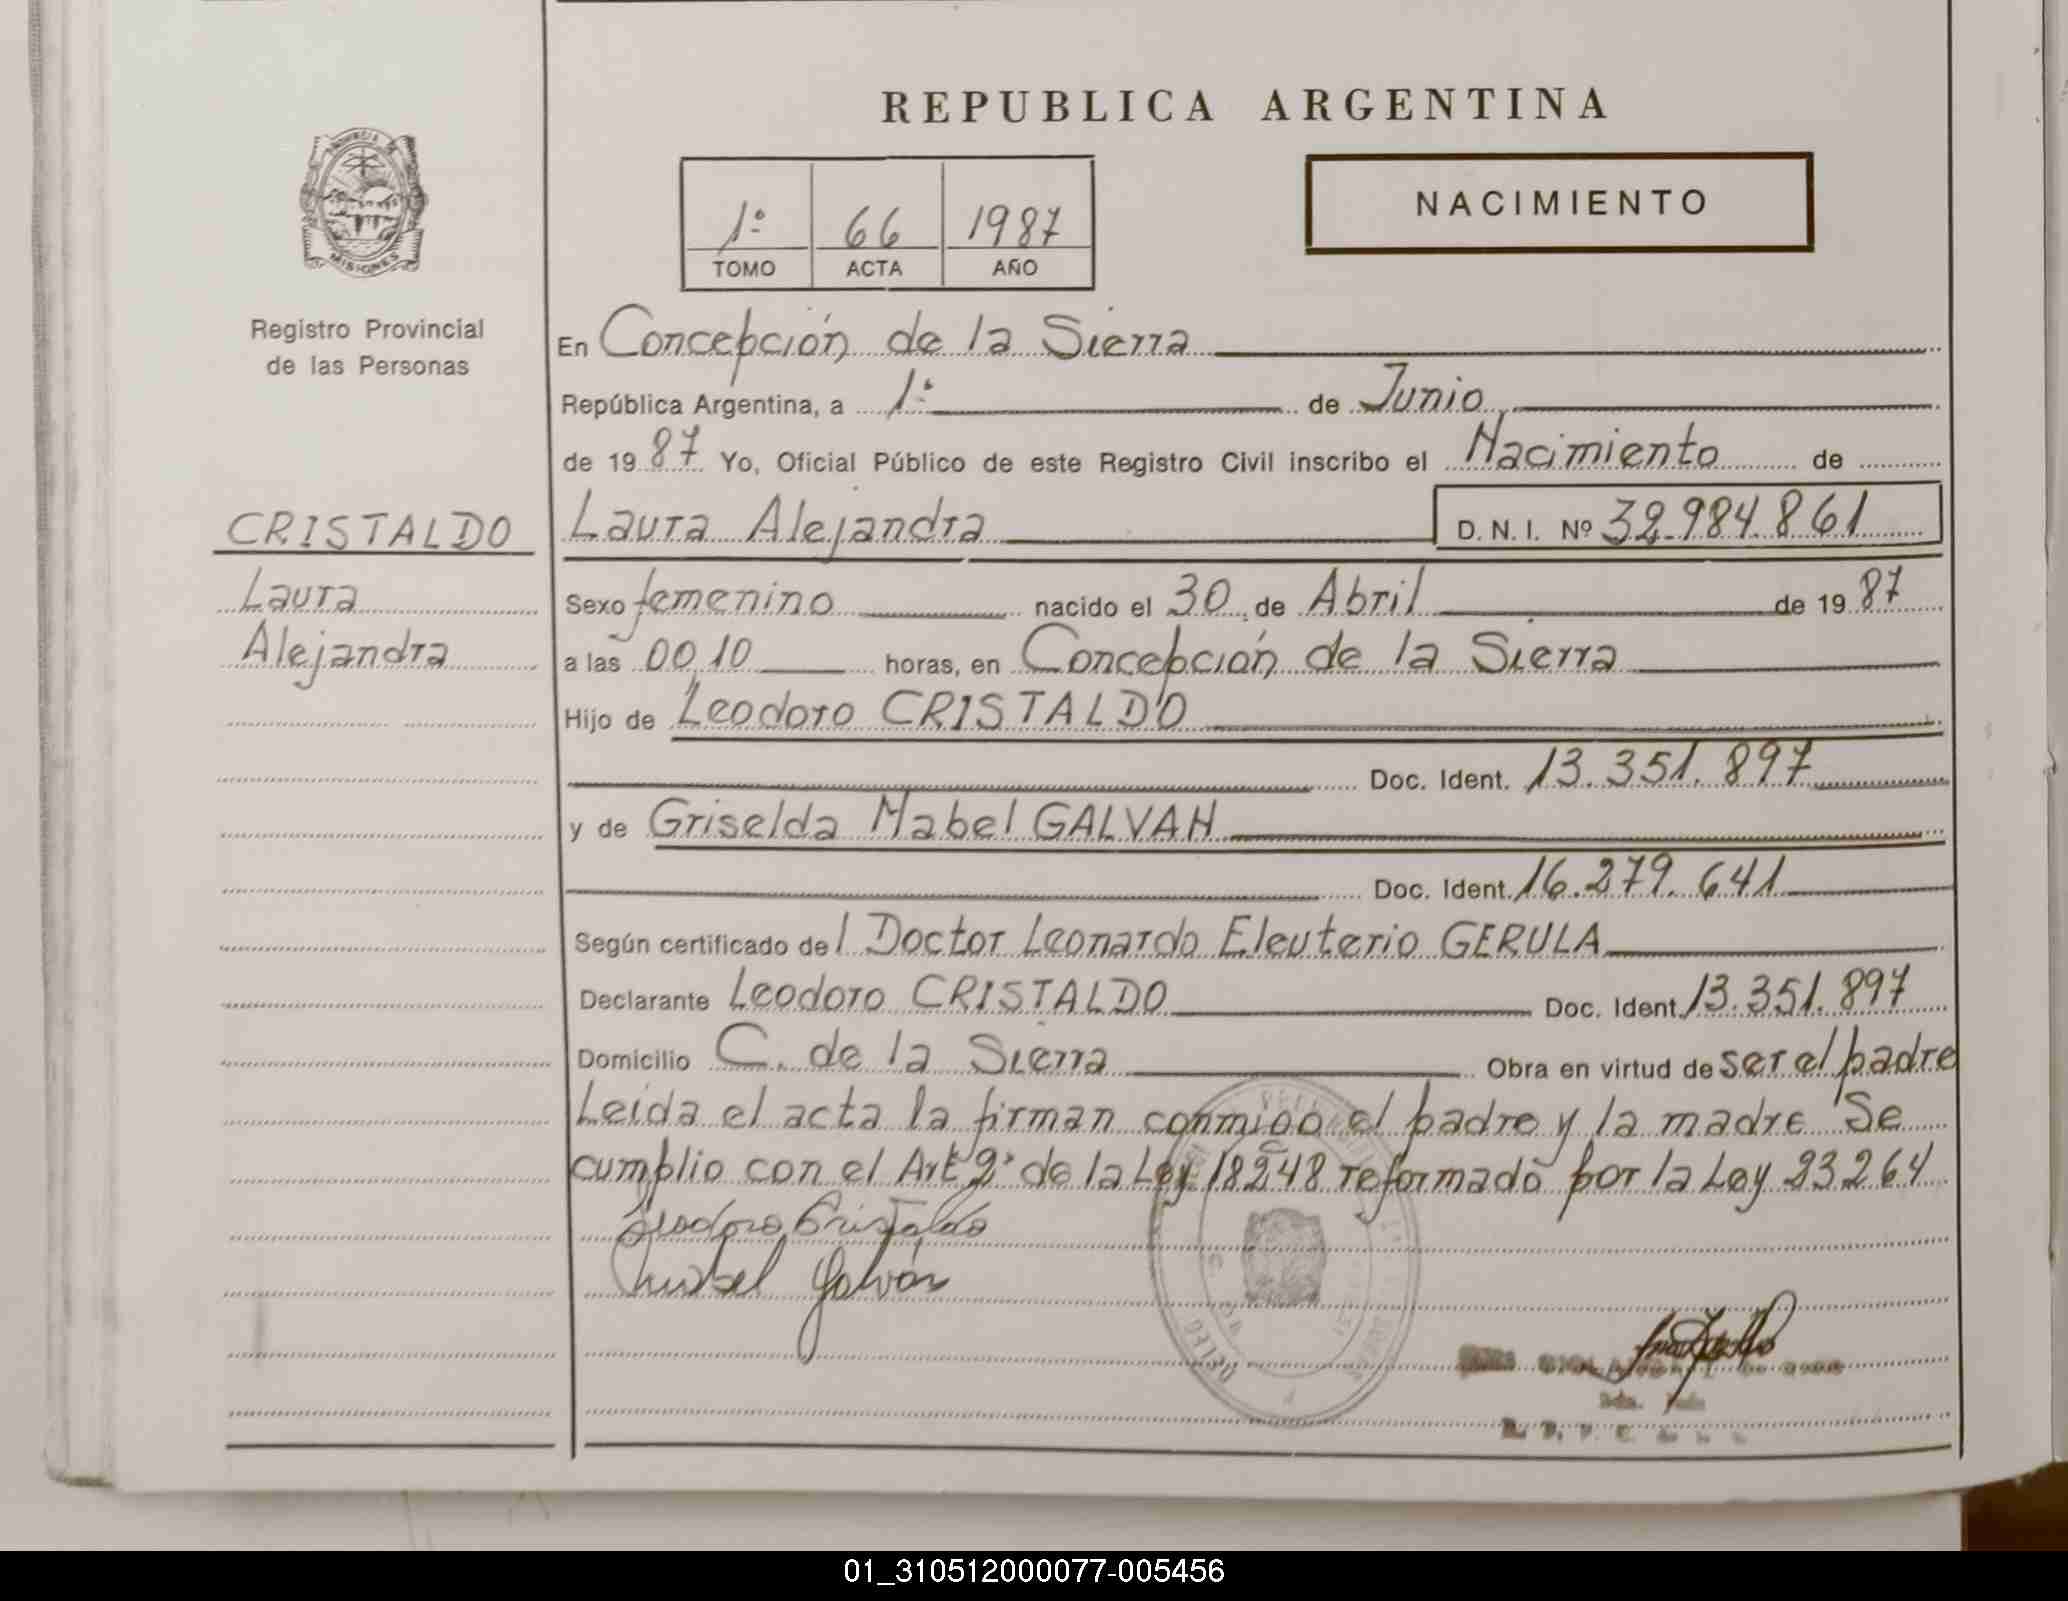 REPUBLICA ARGENTINA
PROVINCIA DE
MISIONES
1º 66 1987
TOMO ACTA AÑO
NACIMIENTO
Registro Provincial
de las Personas
CRISTALDO
Laura
Alejandra
En Concepción de la Sierra
República Argentina, a 1º de Junio
de 1987 Yo, Oficial Público de este Registro Civil inscribo el Nacimiento de
Laura Alejandra D. N. I. Nº 32.984.861
Sexo femenino nacido el 30 de Abril de 1987
a las 00,10 horas, en Concepción de la Sierra
Hijo de Leodoro CRISTALDO
Doc. Ident. 13.351.897
y de Griselda Mabel GALVAN
Doc. Ident. 16.279.641
Según certificado del Doctor Leonardo Eleuterio GERULA
Declarante Leodoro CRISTALDO Doc. Ident. 13.351.897
Domicilio C. de la Sierra Obra en virtud de ser el padre
Leida el acta la firman conmigo el padre y la madre Se
cumplio con el Art 2º de la Ley 18248 reformado por la Ley 23.264
Leodoro Cristaldo
Mabel Galván
01_310512000077-005456